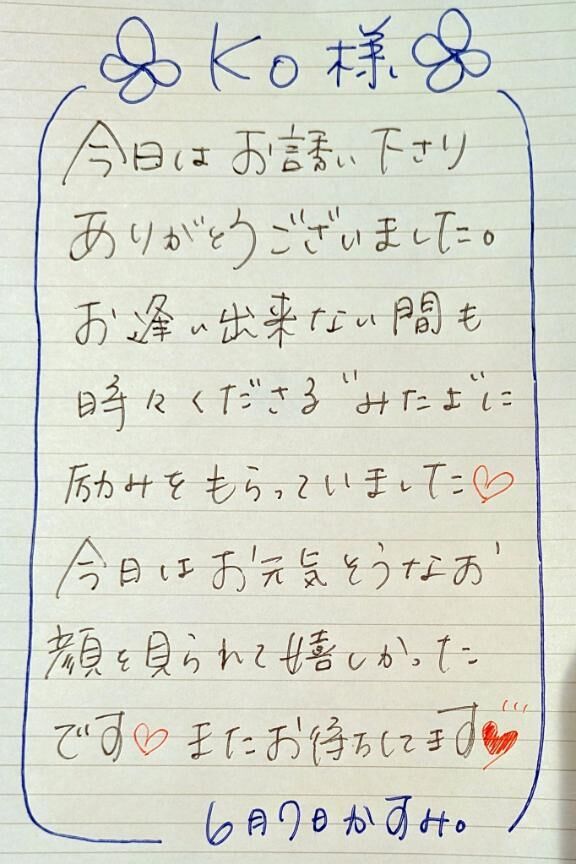 Ko様
今日はお誘い下さり
ありがとうございました。
お逢い出来ない間も
時々くださる"みたよ"に
励みをもらっていました♡
今日はお元気そうなお
顔を見られて嬉しかった
です♡またお待ちしてます♥
6月7日かすみ。